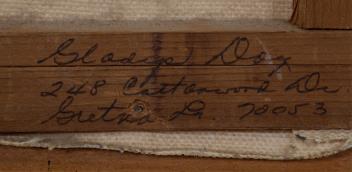 Gladys Day
248 Cottonwood Dr.
Gretna La. 70053